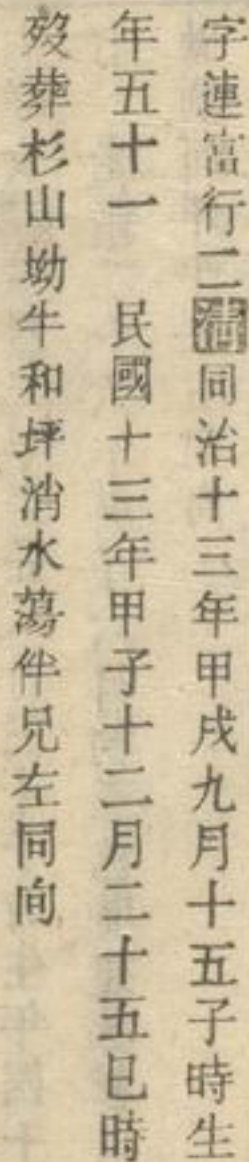 字連富行二清同治十三年甲戌九月十五子時生
年五十一　民國十三年甲子十二月二十五巳時
歿葬杉山坳牛和坪消水蕩伴兄左同向